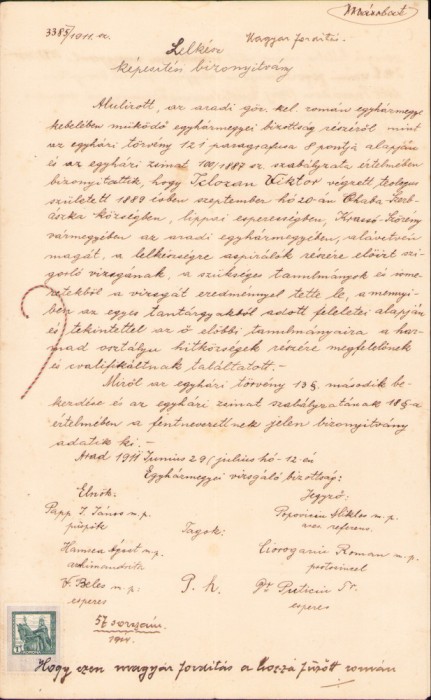 3385/1911. sz.
Magyar fordítás.
Másolat
Lelkész
képesítési bizonyítvány
Alulírott, az aradi gör. kel. román egyházmegye
kebelében működő egyházmegyei bizottság részéről mint
az egyházi törvény 121 paragrafusa 8 pontja alapján
és az egyházi zsinat 100/1887 sz. szabályzata értelmében
bizonyíttatik, hogy Viktor végzett, teologus
született 1889 évben szeptember hó 20-án Chaba-Zer-
községben, lippai esperességben, Krassó-Szörény
vármegyében az aradi egyházmegyében, alávetvén
magát, a lelkészségre aspirálók részére előírt szi-
gorló vizsgának, a szükséges tanulmányok és isme-
retekből a vizsgát eredménnyel tette le, a mennyi-
ben az egyes tantárgyakból adott feleletei alapján
és tekintettel az ő előbbi tanulmányaira a har-
mad osztályu hitközségek részére megfelelőnek
és kvalifikáltnak találtatott.-
Miről az egyházi törvény 13 §. második be-
kezdése és az egyházi zsinat szabályzatának 18 §-a
értelmében a fentnevezettnek jelen bizonyítvány
adatik ki.-
Arad 1911 Junius 29/julius hó-12-én
Egyházmegyei vizsgáló bizottság:
Elnök: Jegyző:
Papp I. János m.p. Popoviciu Miklós m.p.
püspök referens.
Tagok:
Hamsea m.p. Ciorogariu Roman m.p.
archimandrita protosincel
V. Beles m.p. P. h. Dr Putici Tr.
esperes esperes
57 sorszám
1911.
Hogy ezen magyar fordítás a hozzá fűzött román